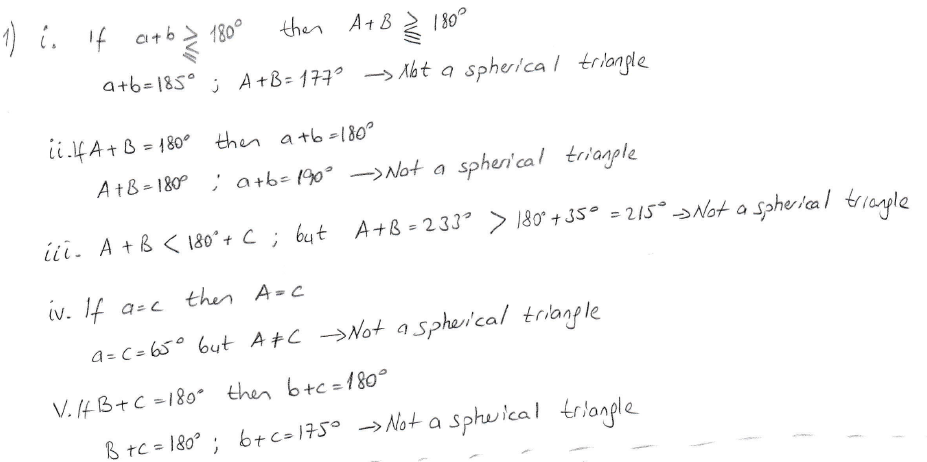 1) i. If a+b ⪌ 180° then A+B ⪌ 180°
a+b=185° ; A+B=177° → Not a spherical triangle
ii. If A+B=180° then a+b=180°
A+B=180° ; a+b=190° → Not a spherical triangle
iii- A+B < 180°+C ; but A+B=233° > 180°+35° =215° → Not a spherical triangle
iv. If a=c then A=C
a=c=65° but A≠C → Not a spherical triangle
V. If B+C=180° then b+c=180°
B+C=180° ; b+c=175° → Not a spherical triangle